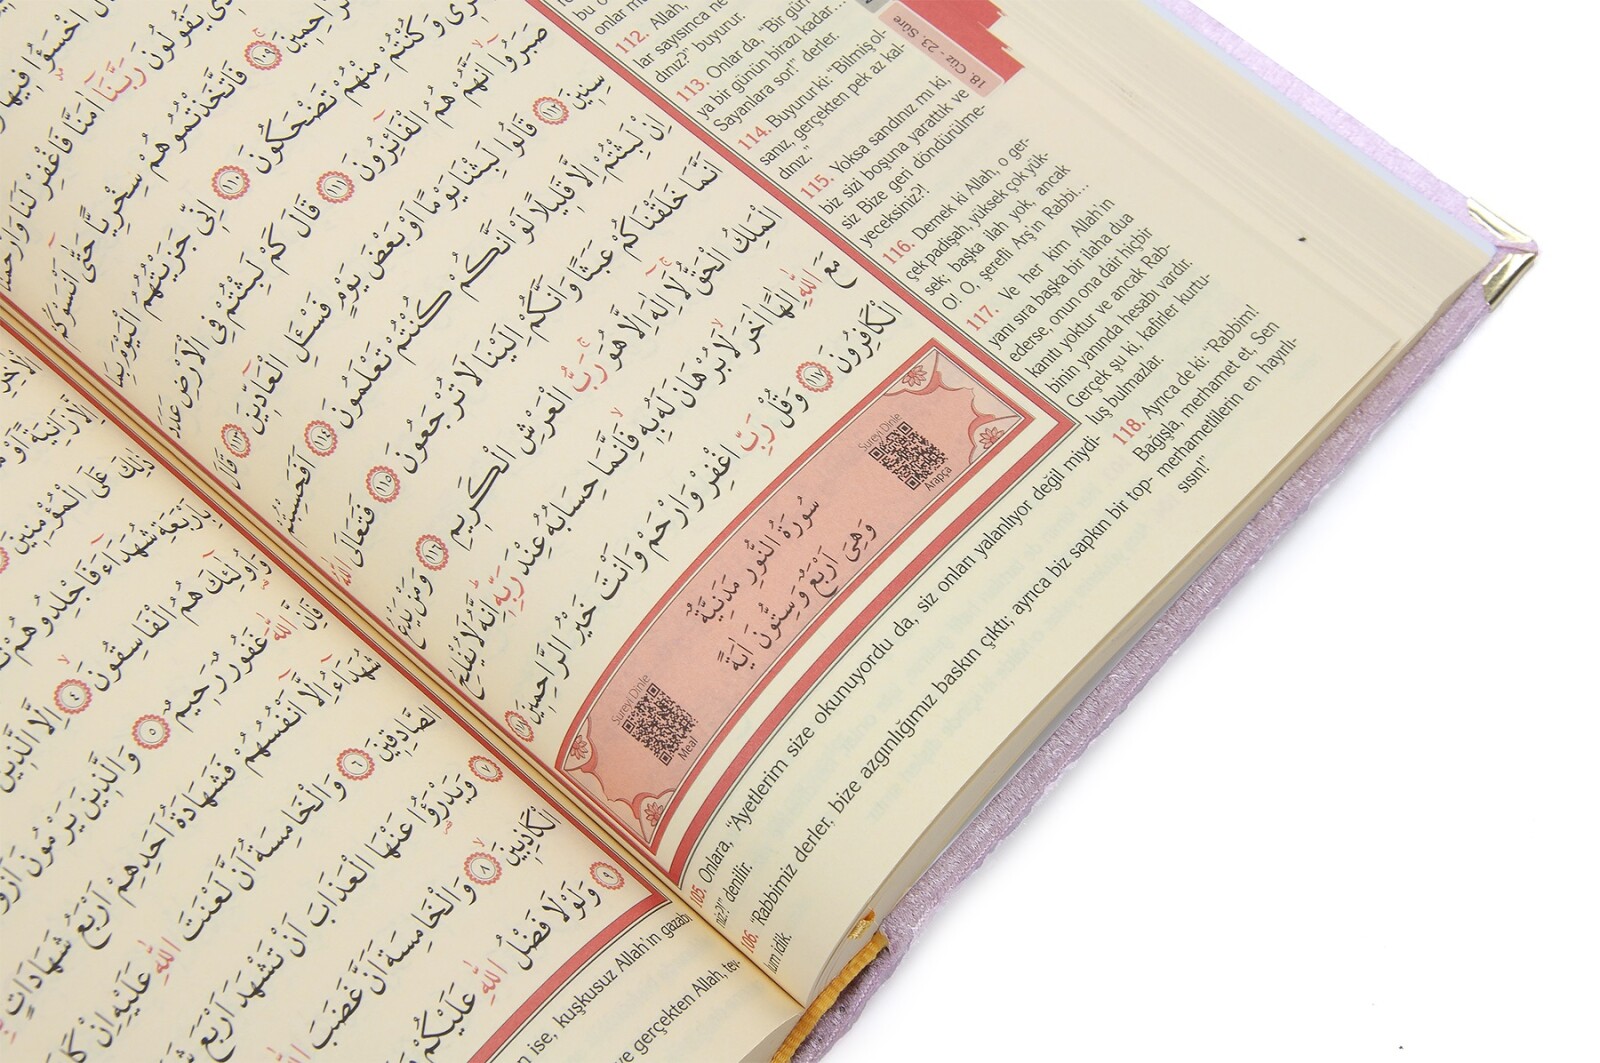 18. Cüz - 23. Sûre
112. Allah,
lar sayısınca ne
dınız?" buyurur.
113. Onlar da, "Bir gün
ya bir günün birazı kadar...
Sayanlara sor!" derler.
114. Buyurur ki: "Bilmiş ol-
sanız, gerçekten pek az kal-
dınız."
115. Yoksa sandınız mı ki,
biz sizi boşuna yarattık ve
siz Bize geri döndürülme-
yeceksiniz?!
116. Demek ki Allah, o ger-
çek padişah, yüksek çok yük-
sek; başka ilah yok, ancak
O! O, şerefli Arş'ın Rabbi...
117. Ve her kim Allah'ın
yanı sıra başka bir ilaha dua
ederse, onun ona dair hiçbir
kanıtı yoktur ve ancak Rab-
binin yanında hesabı vardır.
Gerçek şu ki, kafirler kurtu-
luş bulmazlar.
118. Ayrıca de ki: "Rabbim!
Bağışla, merhamet et, Sen
merhametlilerin en hayırlı-
sısın!"
فَاتَّخَذْتُمُوهُمْ سِخْرِيًّا حَتّٰٓى اَنْسَوْكُمْ
وَكُنْتُمْ مِنْهُمْ تَضْحَكُونَ ﴿١١٠﴾ اِنّٖي جَزَيْتُهُمُ الْيَوْمَ بِمَا
صَبَرُٓوا اَنَّهُمْ هُمُ الْفَٓائِزُونَ ﴿١١١﴾ قَالَ كَمْ لَبِثْتُمْ فِي الْاَرْضِ عَدَدَ
سِنٖينَ ﴿١١٢﴾ قَالُوا لَبِثْنَا يَوْمًا اَوْ بَعْضَ يَوْمٍ فَسْـَٔلِ الْعَٓادّٖينَ ﴿١١٣﴾ قَالَ
اِنْ لَبِثْتُمْ اِلَّا قَلٖيلًا لَوْ اَنَّكُمْ كُنْتُمْ تَعْلَمُونَ ﴿١١٤﴾ اَفَحَسِبْتُمْ
اَنَّمَا خَلَقْنَاكُمْ عَبَثًا وَاَنَّكُمْ اِلَيْنَا لَا تُرْجَعُونَ ﴿١١٥﴾ فَتَعَالَى اللّٰهُ
الْمَلِكُ الْحَقُّ لَٓا اِلٰهَ اِلَّا هُوَ رَبُّ الْعَرْشِ الْكَرٖيمِ ﴿١١٦﴾ وَمَنْ يَدْعُ
مَعَ اللّٰهِ اِلٰهًا اٰخَرَ لَا بُرْهَانَ لَهُ بِهٖ فَاِنَّمَا حِسَابُهُ عِنْدَ رَبِّهٖ اِنَّهُ لَا يُفْلِحُ
الْكَافِرُونَ ﴿١١٧﴾ وَقُلْ رَبِّ اغْفِرْ وَارْحَمْ وَاَنْتَ خَيْرُ الرَّاحِمٖينَ ﴿١١٨﴾
Sureyi Dinle
Arapça
سُورَةُ النُّورِ مَدَنِيَّةٌ
وَهِيَ اَرْبَعٌ وَسِتُّونَ اٰيَةً
Sureyi Dinle
Meal
105. Onlara, "Ayetlerim size okunuyordu da, siz onları yalanlıyor değil miydi-
niz?!" denilir.
106. "Rabbimiz derler, bize azgınlığımız baskın çıktı; ayrıca biz sapkın bir top-
lum idik.
بِاَرْبَعَةِ شُهَدَٓاءَ فَاجْلِدُوهُمْ
وَاُولٰٓئِكَ هُمُ الْفَاسِقُونَ ﴿٤﴾ اِلَّا الَّذٖينَ
فَاِنَّ اللّٰهَ غَفُورٌ رَحٖيمٌ ﴿٥﴾ وَالَّذٖينَ يَرْمُونَ
شُهَدَٓاءُ اِلَّٓا اَنْفُسُهُمْ فَشَهَادَةُ اَحَدِهِمْ اَرْبَعُ شَهَادَاتٍ
الصَّادِقٖينَ ﴿٦﴾ وَالْخَامِسَةُ اَنَّ لَعْنَتَ اللّٰهِ عَلَيْهِ اِنْ
﴿٧﴾ وَيَدْرَؤُا عَنْهَا الْعَذَابَ اَنْ تَشْهَدَ اَرْبَعَ
الْكَاذِبٖينَ ﴿٨﴾ وَالْخَامِسَةَ اَنَّ غَضَبَ
﴿٩﴾ وَلَوْلَا فَضْلُ اللّٰهِ عَلَيْكُمْ
ise, kuşkusuz Allah'ın gazabı
ve gerçekten Allah,